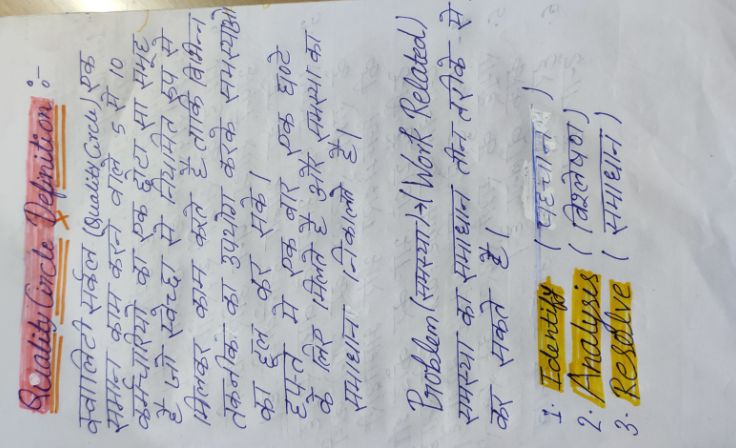 Quality Circle Definition :-
क्वालिटी सर्कल (Quality Circle) एक
समान काम करने वाले 5 से 10
कर्मचारियो का एक छोटा सा समूह
है जो स्वेच्छा से नियमित रूप से
मिलकर काम करते है ताकि विभिन्न
तकनीकि का उपयोग करके समस्याओ
का हल कर सके।
हफ्ते मे एक बार एक घण्टे
के लिए मिलते है और समस्या का
समाधान निकालते है।
Problem (समस्या) → (Work Related)
समस्या का समाधान तीन तरीके से
कर सकते है।
1. Identify ( पहचान )
2. Analysis ( विश्लेषण )
3. Resolve ( समाधान )